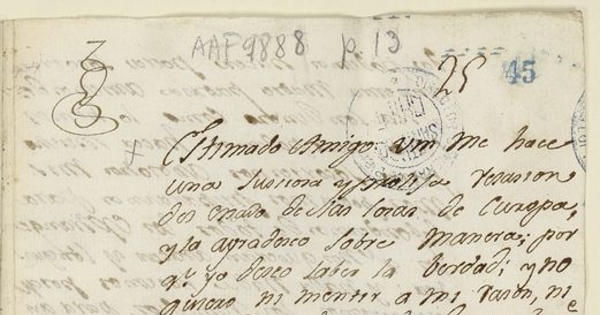 AAF9888 p. 13
25 45
Amado Amigo: vm me hace
una sucsinta y prolija relasion
del estado de las cosas de Europa,
y la agradesco sobre manera; por
q.e yo deseo saber la verdad; y no
quiero ni mentir a mi rason, ni